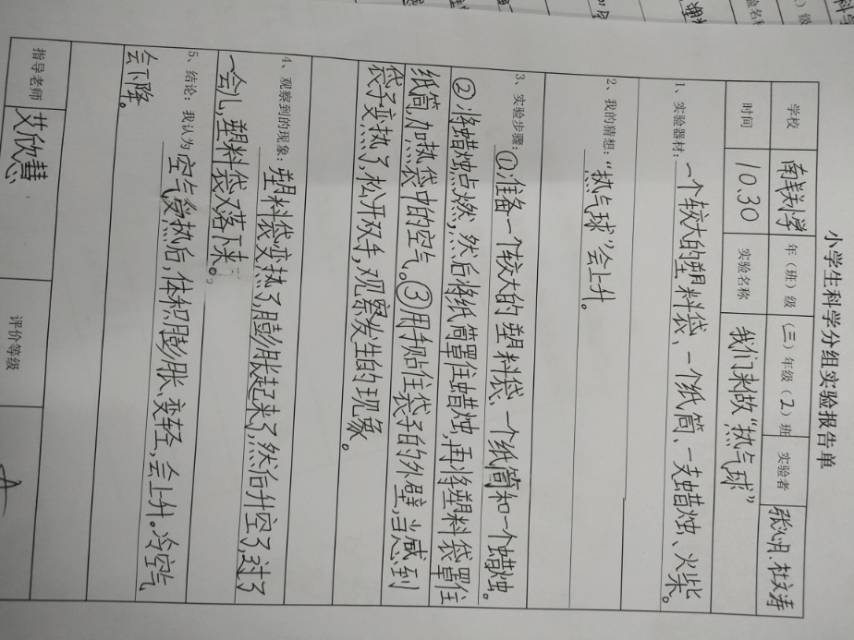 小学生科学分组实验报告单
学校 南关小学 年（班）级 （三）年级（2）班 实验者
时间 10.30 实验名称 我们来做“热气球”
1、实验器材：一个较大的塑料袋、一个纸筒、一支蜡烛、火柴。
2、我的猜想：“热气球”会上升。
3、实验步骤：①准备一个较大的塑料袋、一个纸筒和一个蜡烛。
②将蜡烛点燃，然后将纸筒罩住蜡烛，再将塑料袋罩住
纸筒，加热袋中的空气。③用手贴住袋子的外壁，当感到
袋子变热了，松开双手，观察发生的现象。
4、观察到的现象：塑料袋变热了，膨胀起来了，然后升空了，过了
一会儿，塑料袋又落下来。
5、结论：我认为 空气受热后，体积膨胀、变轻，会上升。冷空气
会下降。
指导老师 艾欣慧 评价等级 A